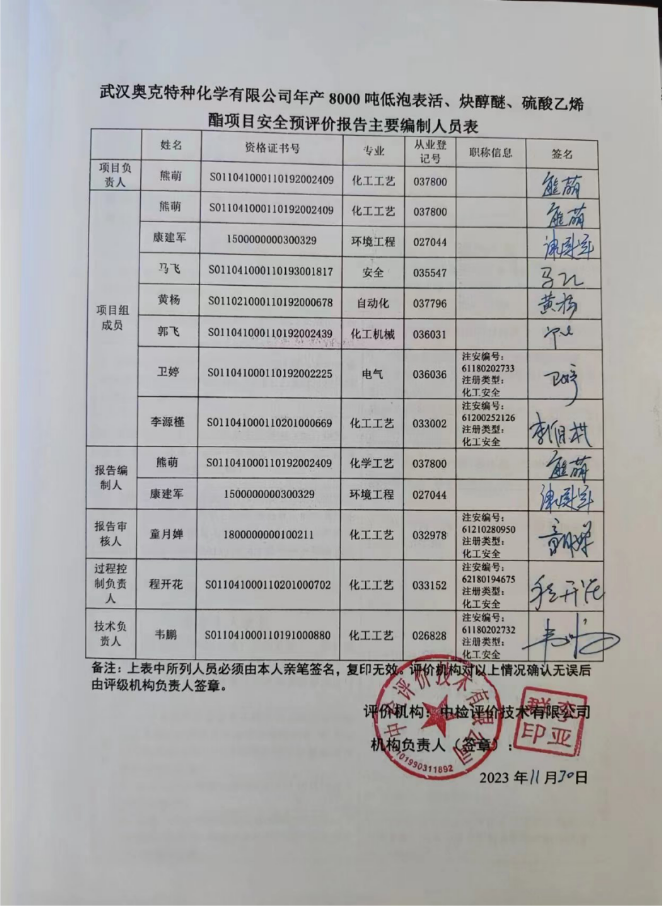 武汉奥克特种化学有限公司年产 8000 吨低泡表活、炔醇醚、硫酸乙烯
酯项目安全预评价报告主要编制人员表
姓名 资格证书号 专业 从业登记号 职称信息 签名
项目负责人 熊萌 S011041000110192002409 化工工艺 037800 熊萌
项目组成员 熊萌 S011041000110192002409 化工工艺 037800 熊萌
康建军 1500000000300329 环境工程 027044 康建军
马飞 S011041000110193001817 安全 035547 马飞
黄杨 S011021000110192000678 自动化 037796 黄杨
郭飞 S011041000110192002439 化工机械 036031
卫婷 S011041000110192002225 电气 036036 注安编号: 61180202733 注册类型: 化工安全 卫婷
李源槿 S011041000110201000669 化工工艺 033002 注安编号: 61200252126 注册类型: 化工安全
报告编制人 熊萌 S011041000110192002409 化学工艺 037800 熊萌
康建军 1500000000300329 环境工程 027044 康建军
报告审核人 童月婵 1800000000100211 化工工艺 032978 注安编号: 61210280950 注册类型: 化工安全 童月婵
过程控制负责人 程开花 S011041000110201000702 化工工艺 033152 注安编号: 62180194675 注册类型: 化工安全 程开花
技术负责人 韦鹏 S011041000110191000880 化工工艺 026828 注安编号: 61180202732 注册类型: 化工安全 韦鹏
备注：上表中所列人员必须由本人亲笔签名，复印无效。评价机构对以上情况确认无误后
由评级机构负责人签章。
评价机构：中检评价技术有限公司
机构负责人（签章）：
2023 年 11 月 30 日
中检评价技术有限公司
李亚群印